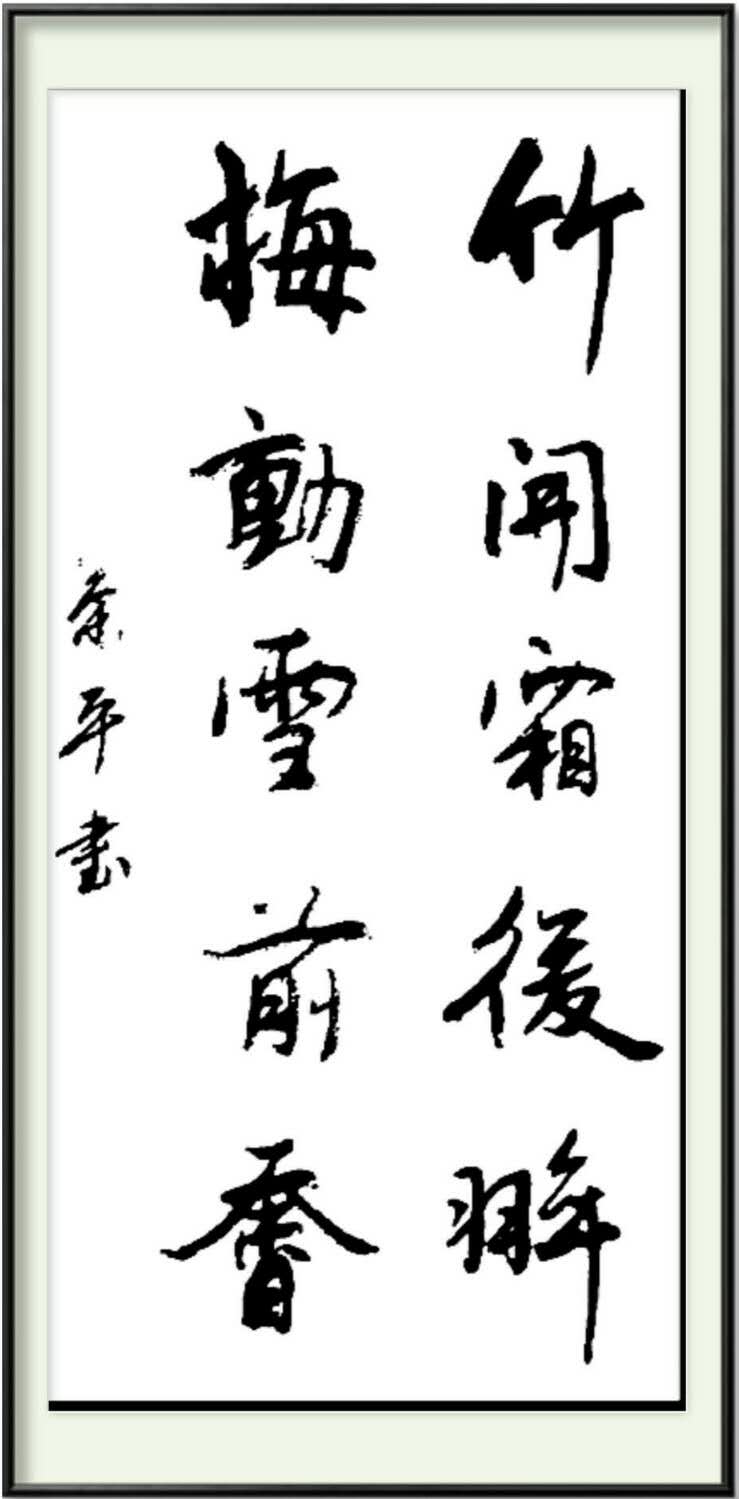 竹開霜後翠
梅動雪前香
余平書